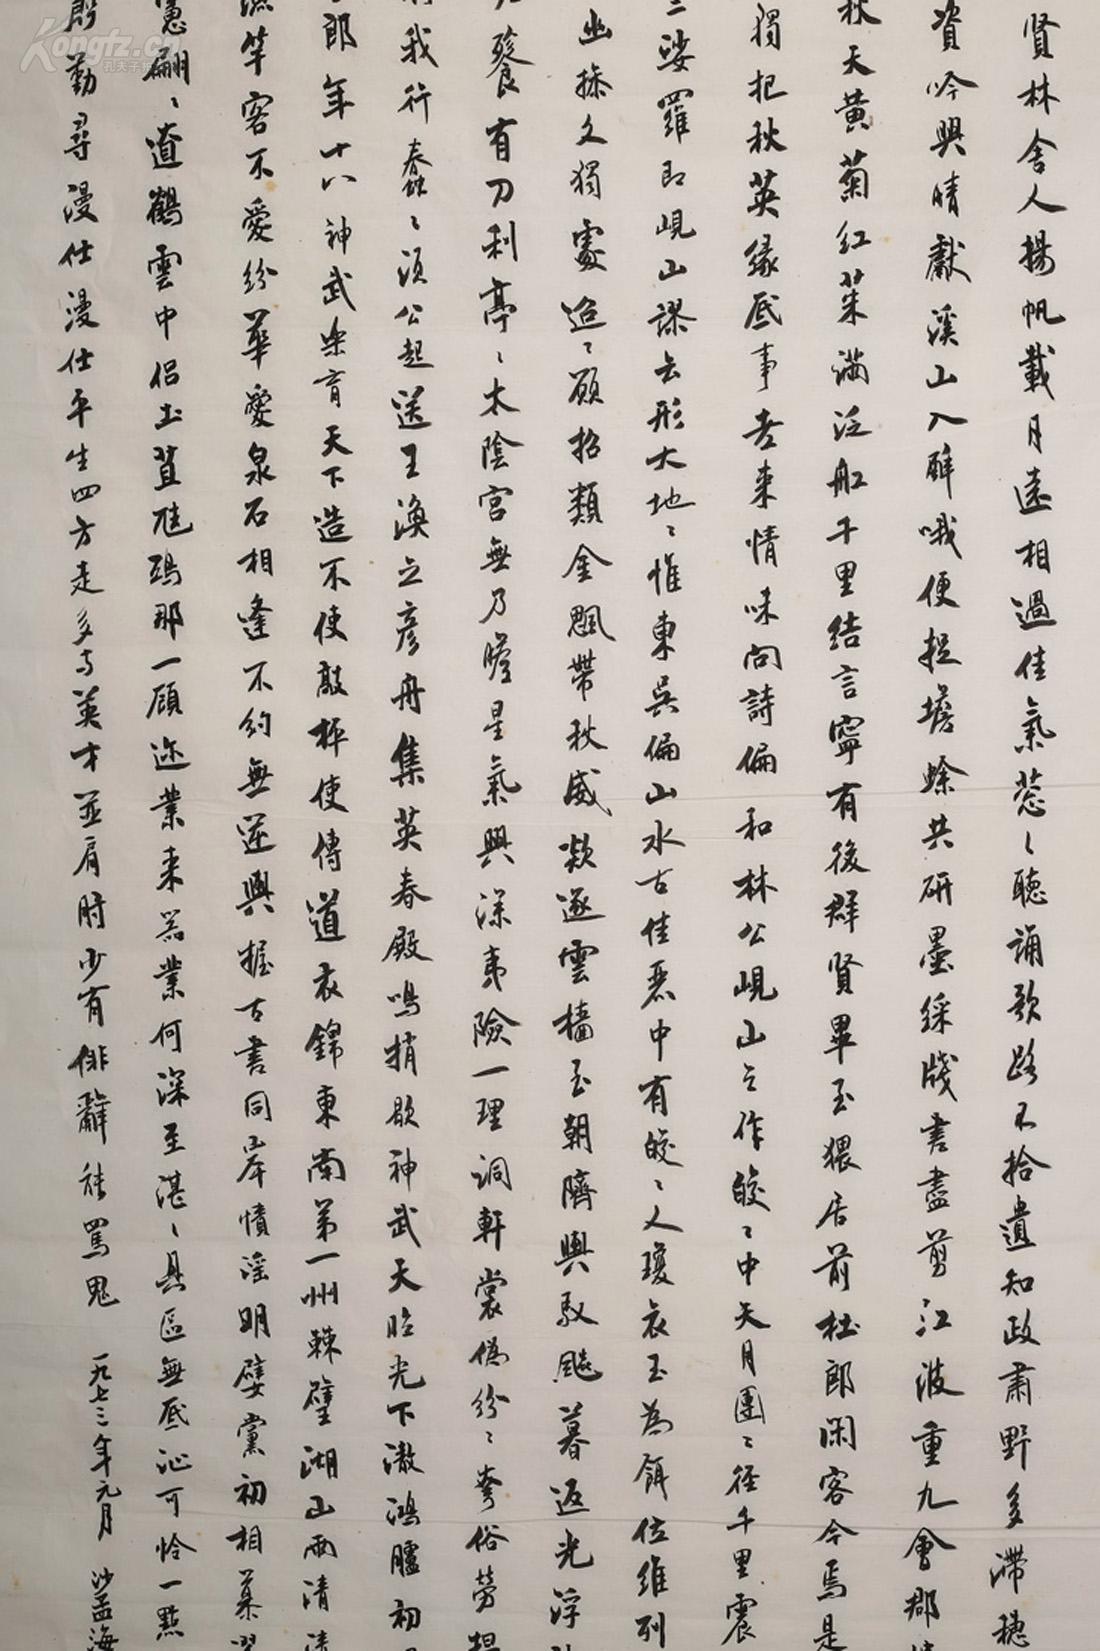 賢林舍人揚帆載月遠相過佳氣蔥〻聽誦歌路不拾遺知政肅野多滯穗
資吟興晴獻溪山入醉哦便捉蟾蜍共研墨綵牋書盡剪江波重九會郡
秋天黃菊紅茱滿泛船千里結言寧有後群賢畢至猥居前杜郎閑客今焉是
獨把秋英緣底事老來情味向詩偏和林公峴山之作皎〻中天月團〻徑千里震
二娑羅即峴山謬云形大地〻惟東吳偏山水古佳麗中有皎〻人瓊衣玉為餌位維列
幽操久獨處迢〻願招類金飆帶秋威歘逐雲檣至朝隮輿馭飈暮返光浮
餮有刀利亭〻太陰宮無乃瞻星氣興深夷險一理洞軒裳偽紛〻夸俗勞
我行蠢〻須公起送王渙之彥舟集英春殿鳴捎歇神武天臨光下澈鴻臚初
郎年十八神武樂育天下造不使敲枰使傳道衣錦東南第一州棘璧湖山兩清
竿客不愛紛華愛泉石相逢不約無逆輿握古書同岸幘淫明嬖黨初相慕
翩〻遼鶴雲中侶土苴尪鴟那一顧邇業來為業何深至湛〻具區無底沁可怜一點
勤尋漫仕漫仕平生四方走多与英才並肩肘少有俳辭能罵鬼
一九七三年元月 沙孟海
Kongfz.cn
孔夫子